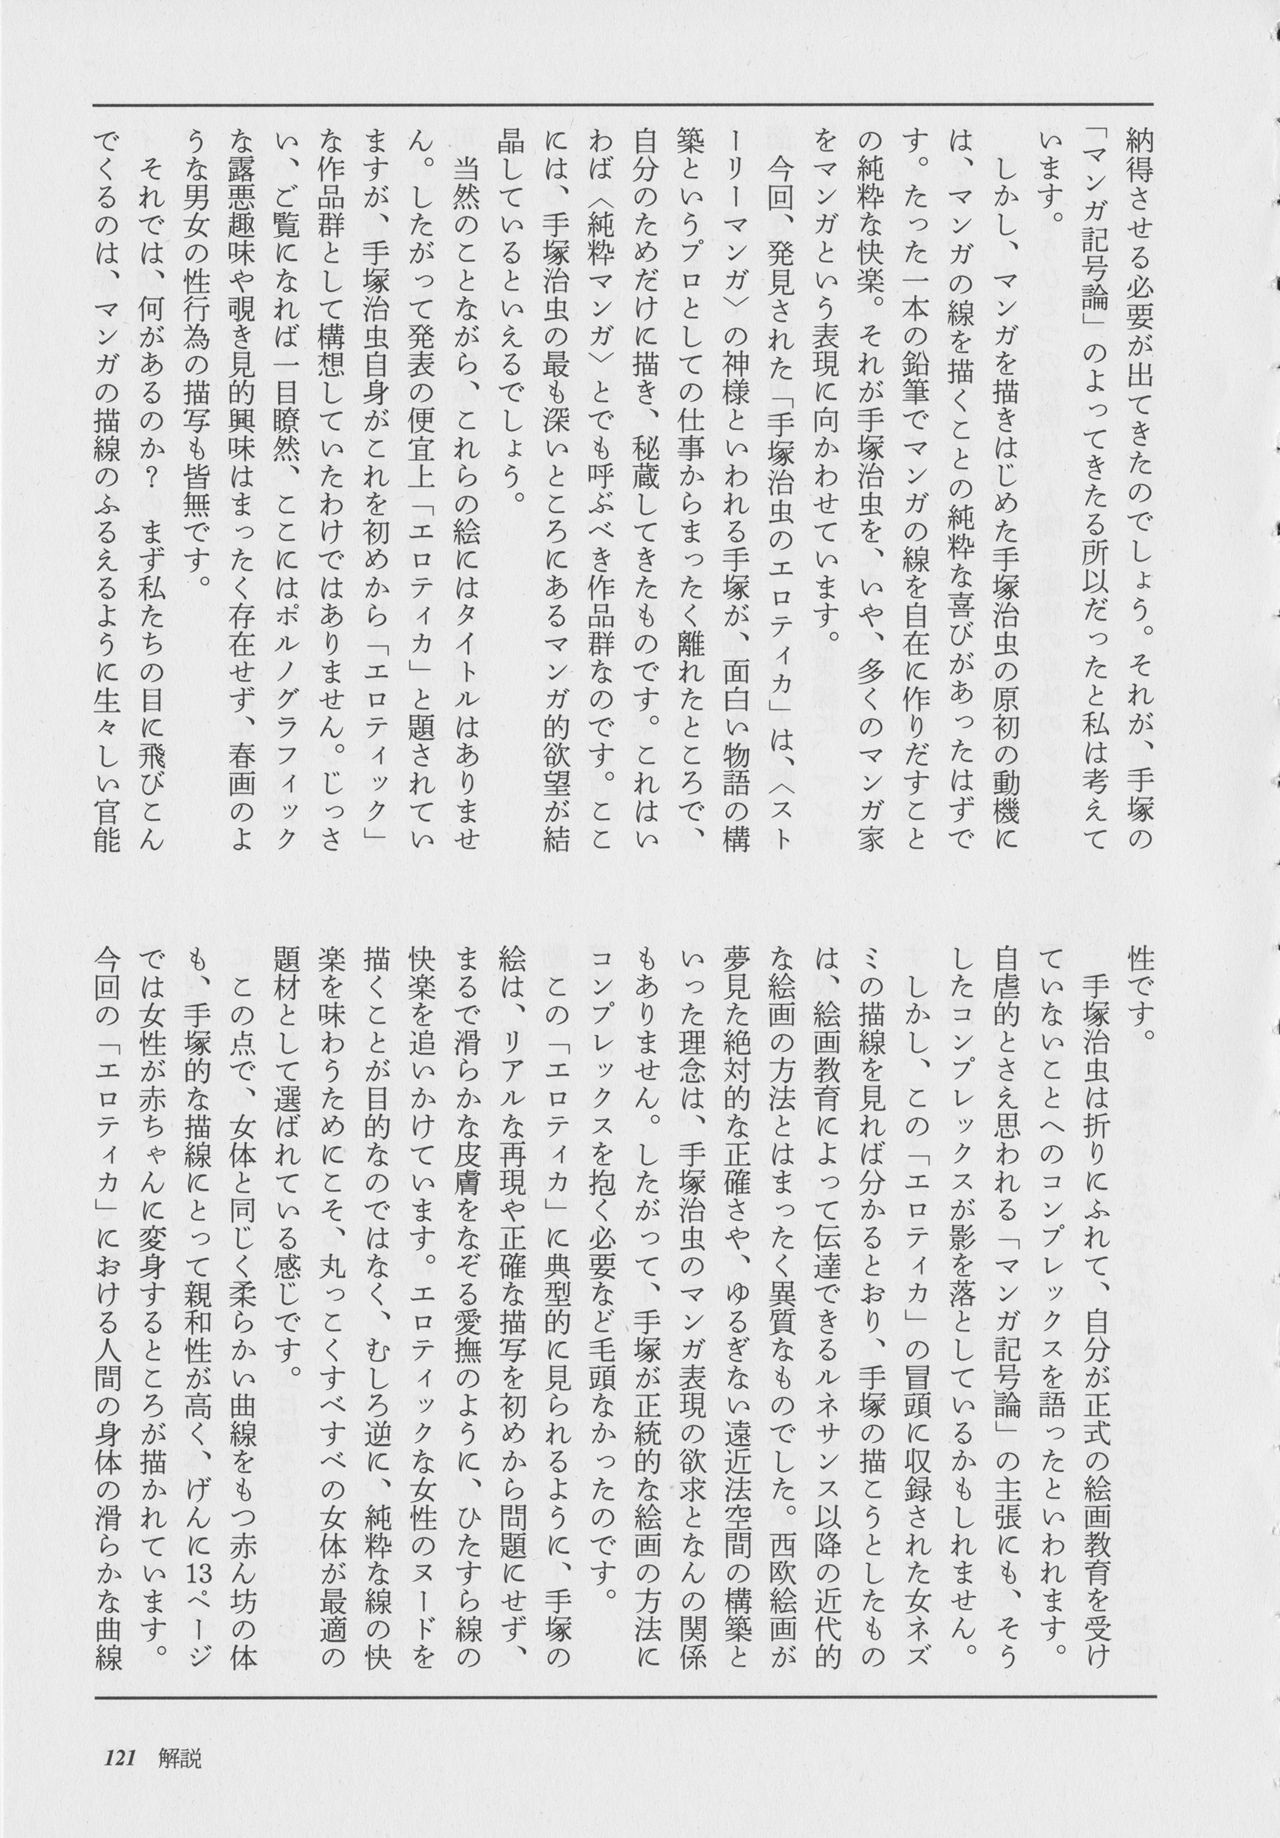 納得させる必要が出てきたのでしょう。それが、手塚の
「マンガ記号論」のよってきたる所以だったと私は考えて
います。
しかし、マンガを描きはじめた手塚治虫の原初の動機に
は、マンガの線を描くことの純粋な喜びがあったはずで
す。たった一本の鉛筆でマンガの線を自在に作りだすこと
の純粋な快楽。それが手塚治虫を、いや、多くのマンガ家
をマンガという表現に向かわせています。
今回、発見された「手塚治虫のエロティカ」は、〈スト
ーリーマンガ〉の神様といわれる手塚が、面白い物語の構
築というプロとしての仕事からまったく離れたところで、
自分のためだけに描き、秘蔵してきたものです。これはい
わば〈純粋マンガ〉とでも呼ぶべき作品群なのです。ここ
には、手塚治虫の最も深いところにあるマンガ的欲望が結
晶しているといえるでしょう。
当然のことながら、これらの絵にはタイトルはありませ
ん。したがって発表の便宜上「エロティカ」と題されてい
ますが、手塚治虫自身がこれを初めから「エロティック」
な作品群として構想していたわけではありません。じっさ
い、ご覧になれば一目瞭然、ここにはポルノグラフィック
な露悪趣味や覗き見的興味はまったく存在せず、春画のよ
うな男女の性行為の描写も皆無です。
それでは、何があるのか？ まず私たちの目に飛びこん
でくるのは、マンガの描線のふるえるように生々しい官能
性です。
手塚治虫は折りにふれて、自分が正式の絵画教育を受け
ていないことへのコンプレックスを語ったといわれます。
自虐的とさえ思われる「マンガ記号論」の主張にも、そう
したコンプレックスが影を落としているかもしれません。
しかし、この「エロティカ」の冒頭に収録された女ネズ
ミの描線を見れば分かるとおり、手塚の描こうとしたもの
は、絵画教育によって伝達できるルネサンス以降の近代的
な絵画の方法とはまったく異質なものでした。西欧絵画が
夢見た絶対的な正確さや、ゆるぎない遠近法空間の構築と
いった理念は、手塚治虫のマンガ表現の欲求となんの関係
もありません。したがって、手塚が正統的な絵画の方法に
コンプレックスを抱く必要など毛頭なかったのです。
この「エロティカ」に典型的に見られるように、手塚の
絵は、リアルな再現や正確な描写を初めから問題にせず、
まるで滑らかな皮膚をなぞる愛撫のように、ひたすら線の
快楽を追いかけています。エロティックな女性のヌードを
描くことが目的なのではなく、むしろ逆に、純粋な線の快
楽を味わうためにこそ、丸っこくすべすべの女体が最適の
題材として選ばれている感じです。
この点で、女体と同じく柔らかい曲線をもつ赤ん坊の体
も、手塚的な描線にとって親和性が高く、げんに13ページ
では女性が赤ちゃんに変身するところが描かれています。
今回の「エロティカ」における人間の身体の滑らかな曲線
121 解説